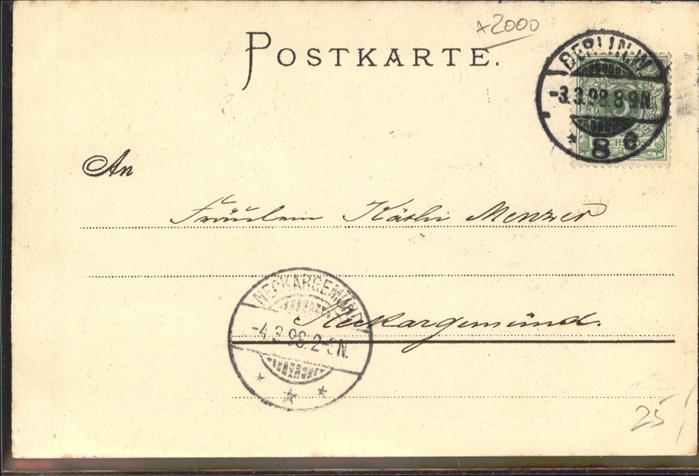 x2000
POSTKARTE.
BERLIN.W.
-3.3.98.8-9N.
* 8 e
An
Fräulein Käthi Menzer
NECKARGEMÜND
Neckargemünd.
-4.3.98.2-3N.
25